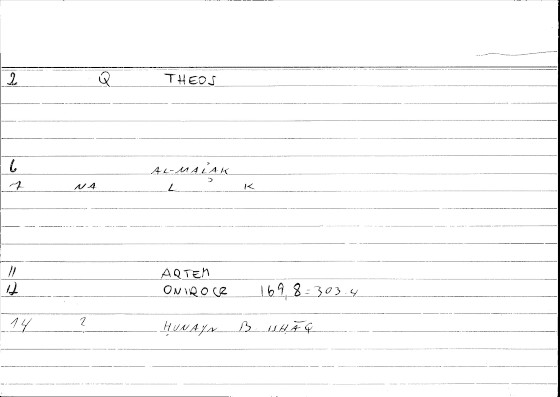 2 Q THEOS
6 AL-MALAK
7 NA L K
11 ARTEM
12 ONIROCR 169,8=303.4
14 2 ḤUNAYN B ISḤĀQ